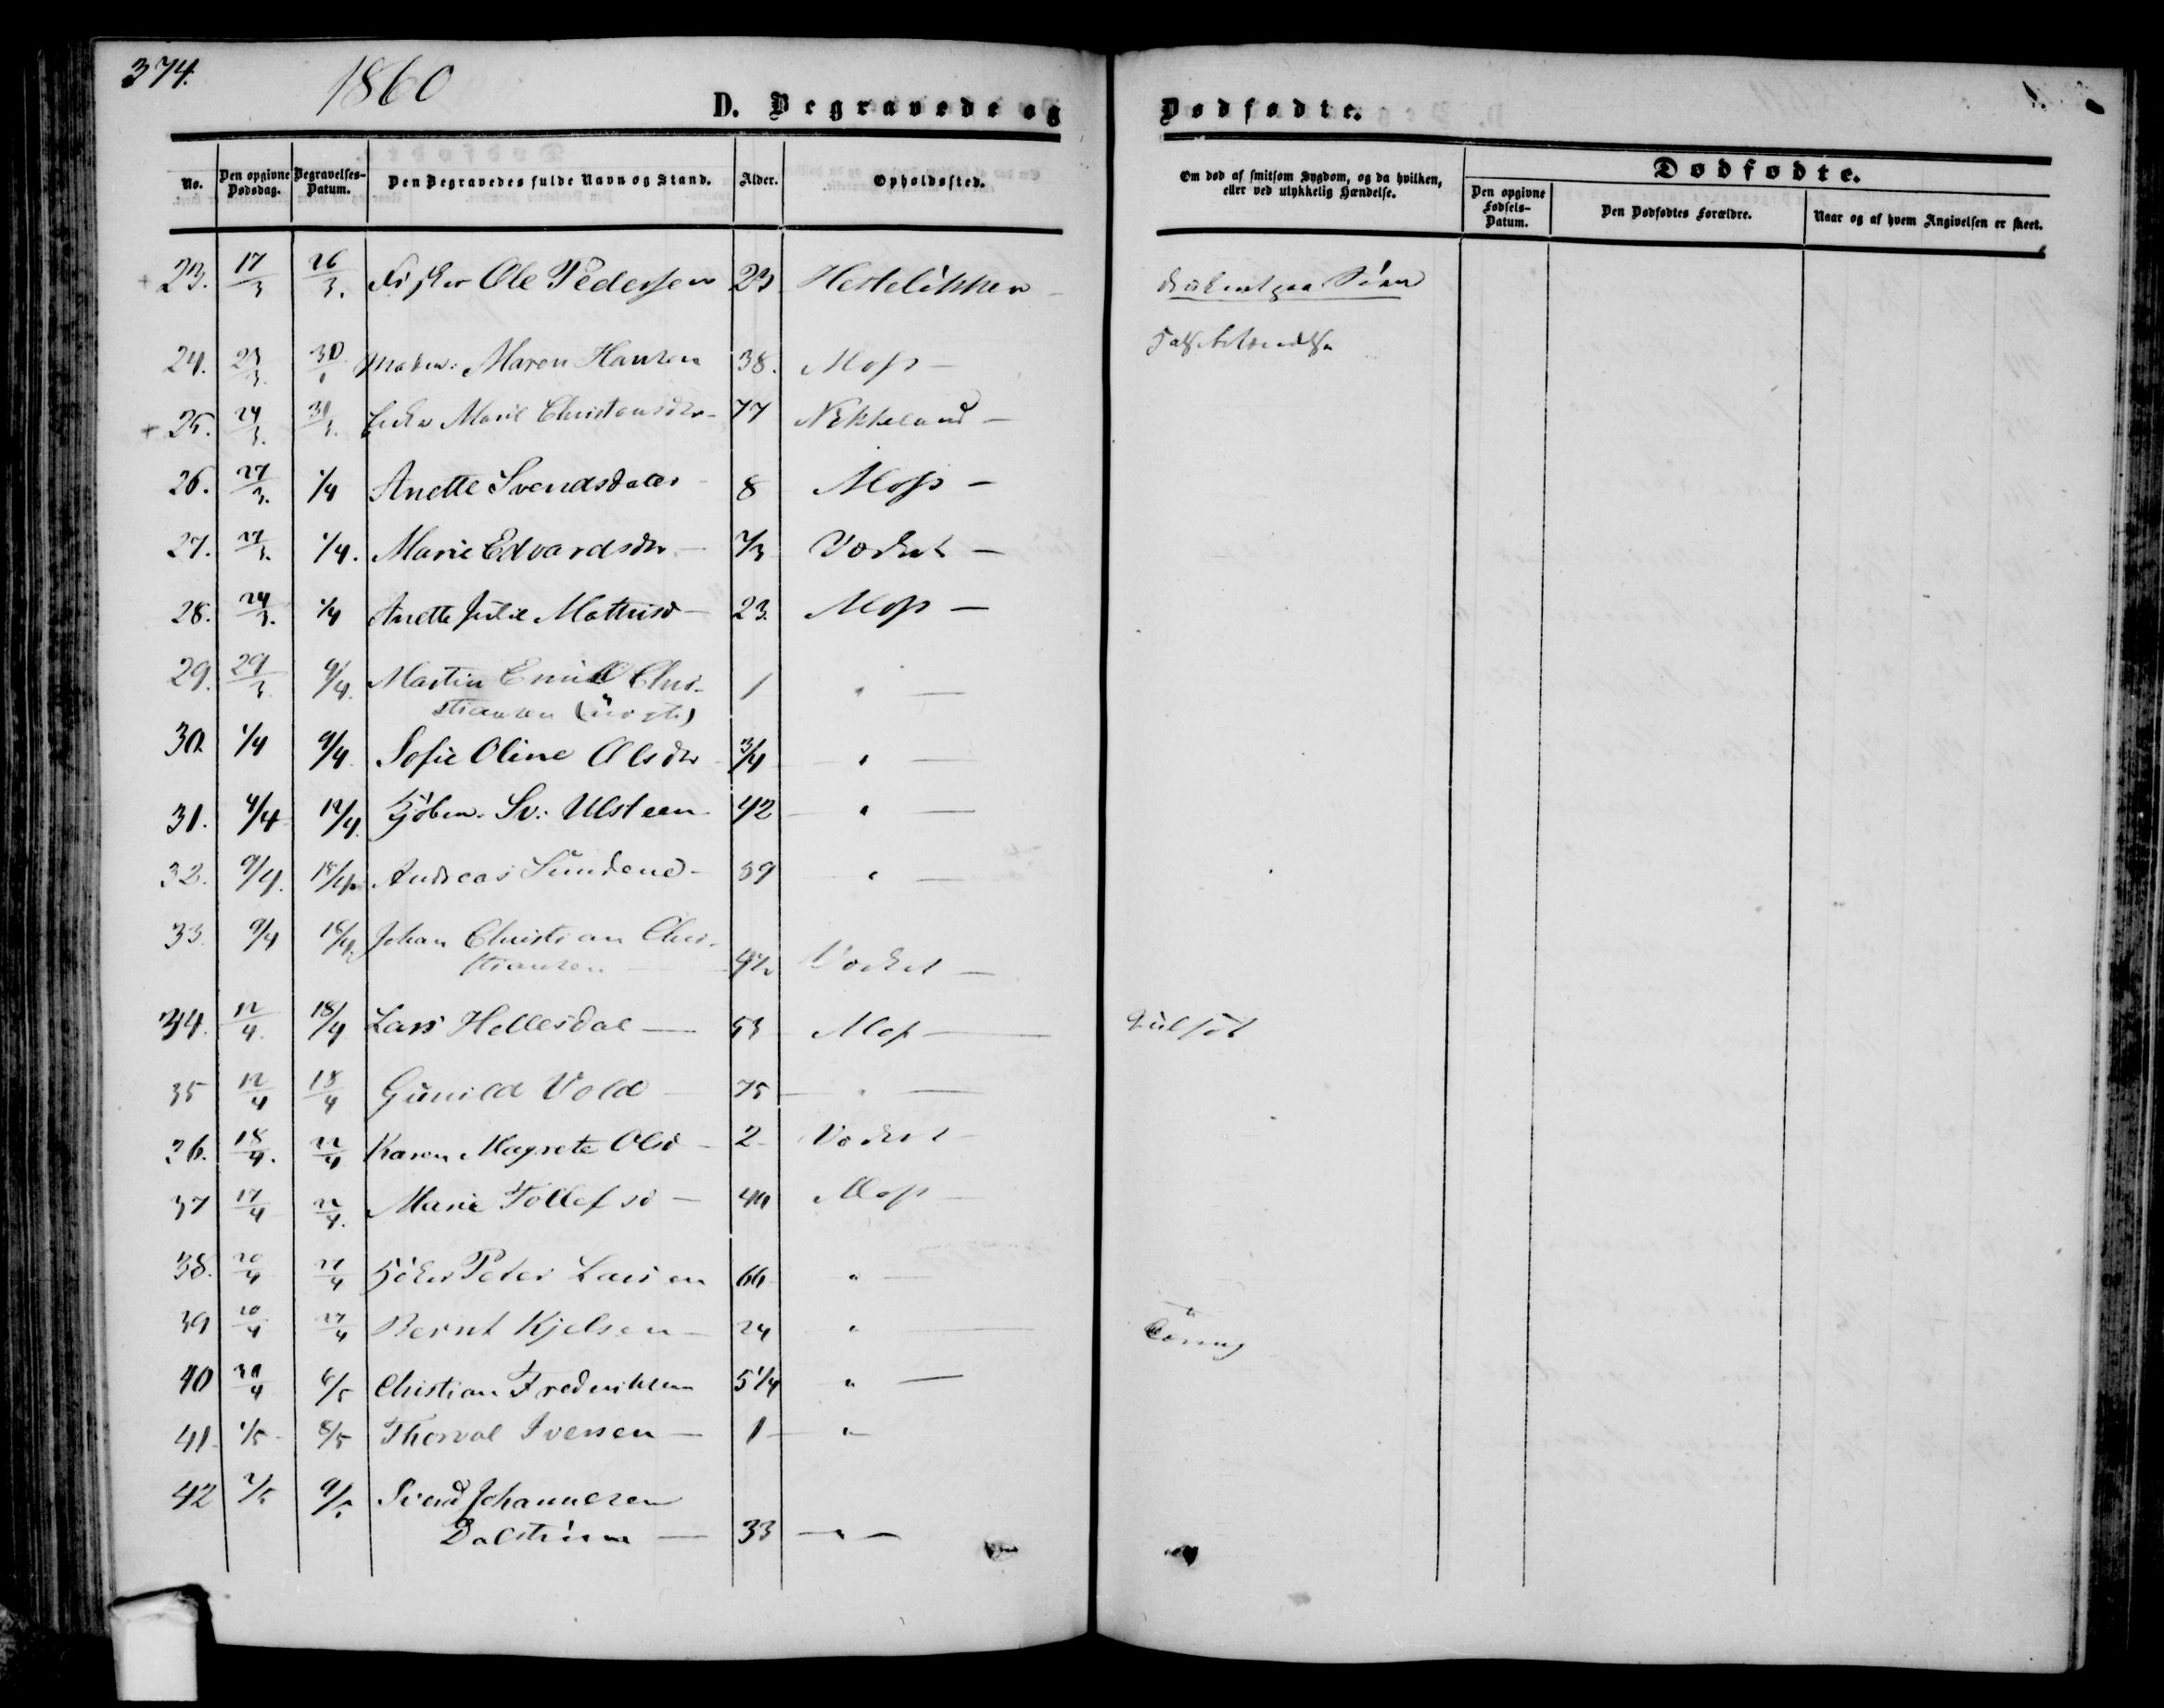 374.
1860
D. Begravede og
Dødfødte.
No. Den opgivne Dødsdag. Begravelses-Datum. Den Begravedes fulde Navn og Stand. Alder. Opholdssted.
Om død af smitsom Sygdom, og da hvilken, eller ved ulykkelig Hændelse.
Dødfødte.
Den opgivne Fødsels-Datum. Den Dødfødtes Forældre. Naar og af hvem Angivelsen er skeet.
+ 23. 17/3 26/3. Fisker Ole Pedersen 23 Hestelökken
24. 23/3. 30 Maren Hansen 38. Moss -
+ 25. 24/3. 31/3. Enke Marie Christensdtr- 77 Nekkeland -
26. 27/3. 1/4 Anette Svendsdater 8 Moss -
27. 27/3. 1/4. Marie Edvardsdtr. - Værket -
28. 24/3. 1/4 Anette Julie Mathisd - 23. Moss -
29. 29/3. 9/4. Martin Emil Chri-
stiansen (uægte) 1 " -
30 1/4 9/4. Sofie Oline Olsdtr 3/4 " -
31. 4/4 12/4. Kjöbm. Sv: Ulsteen 42 " -
32. 9/4. 18/4. Andreas Sundene - 59 " -
33. 9/4 18/4. Johan Christian Chri-
stiansen - Værket -
34. 12/4. 18/4 Lars Hellesdal - 53 Moss - Gulsot
35 12/4 18/4 Gunild Vold 75 " -
36. 18/4. 22/4 Karen Magrete Olsd - 2 Værket -
37 17/4 22/4. Marie Tollefsd - Moss -
38. 20/4 27/4 Peter Larsen 66 " -
39 20/4 27/4 Bernt Kjelsen - 24 " - Tæring
40 6/5 Christian Frederiksen 5 1/4 " -
41 1/5 8/5 Thorval Iversen - 1 "
42 2/5 9/5 Svend Johannesen
Dalström - 33 "